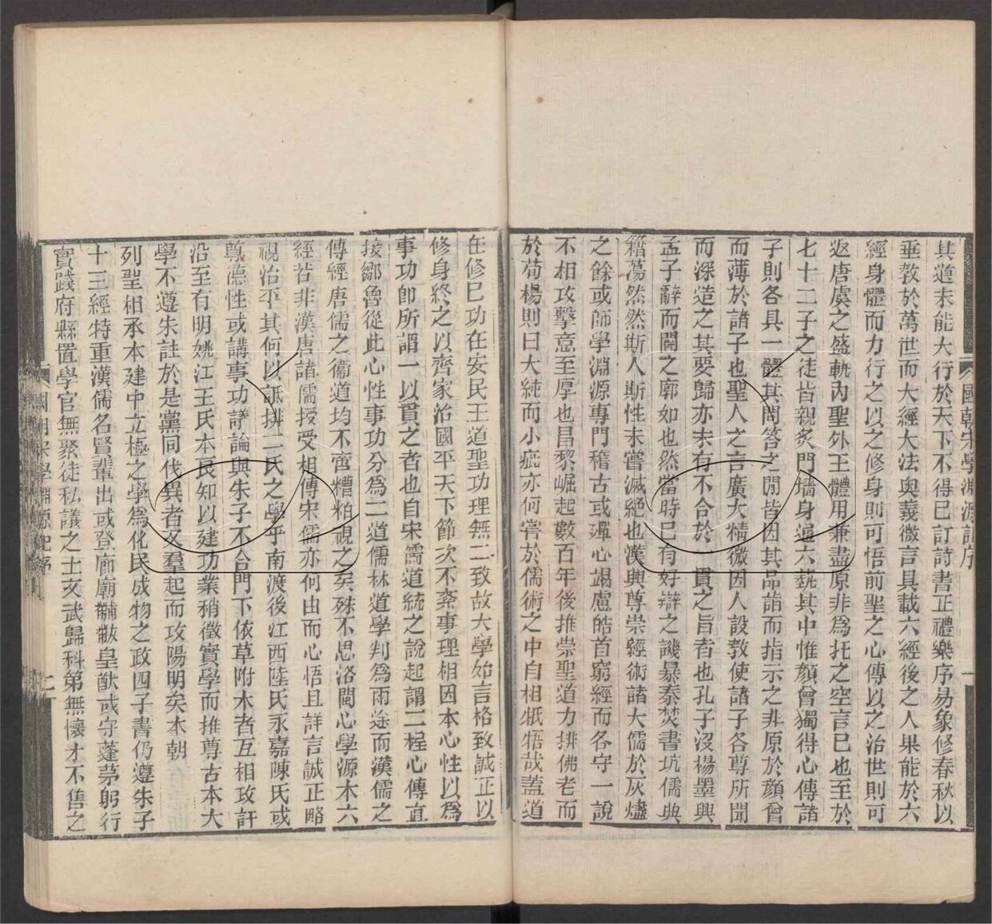 國朝宋學淵源記序
其道未能大行於天下不得已訂詩書正禮樂序易象修春秋以
垂教於萬世而大經大法與義微言具載六經後之人果能於六
經身體而力行之以之修身則可悟前聖之心傳以之治世則可
返唐虞之盛軌內聖外王體用兼盡原非爲托之空言已也至於
七十二子之徒皆親炙門墻身通六蓺其中惟顏曾獨得心傳諸
子則各具一體其問答之閒皆因其品詣而指示之非原於顏曾
而薄於諸子也聖人之言廣大精微因人設教使諸子各尊所聞
而深造之其要歸亦未有不合於一貫之旨者也孔子沒楊墨興
孟子辭而闢之廓如也然當時已有好辯之譏暴秦焚書坑儒典
籍蕩然然斯人斯性未嘗滅絕也漢興尊崇經術諸大儒於灰燼
之餘或師學淵源專門稽古或殫心竭慮皓首窮經而各守一說
不相攻擊意至厚也昌黎崛起數百年後推崇聖道力排佛老而
於荀楊則曰大純而小疵亦何嘗於儒術之中自相牴牾哉蓋道
在修已功在安民王道聖功理無二致故大學始言格致誠正以
修身終之以齊家治國平天下節次不紊事理相因本心性以爲
事功卽所謂一以貫之者也自宋儒道統之說起謂二程心傳直
接鄒魯從此心性事功分爲二道儒林道學判爲兩途而漢儒之
傳經唐儒之衛道均不啻糟粕視之矣殊不思洛閩心學源本六
經若非漢唐諸儒授受相傳宋儒亦何由而心悟且詳言誠正略
視治平其何以詆排二氏之學乎南渡後江西陸氏永嘉陳氏或
尊德性或講事功議論與朱子不合門下依草附木者互相攻訐
沿至有明姚江王氏本良知以建功業稍徵實學而推尊古本大
學不遵朱註於是黨同伐異者又羣起而攻陽明矣本朝
列聖相承本建中立極之學爲化民成物之政四子書仍遵朱子
十三經特重漢儒名賢輩出或登廊廟黼黻皇猷或守蓬茅躬行
實踐府縣置學官無聚徒私議之士文武歸科第無懷才不售之